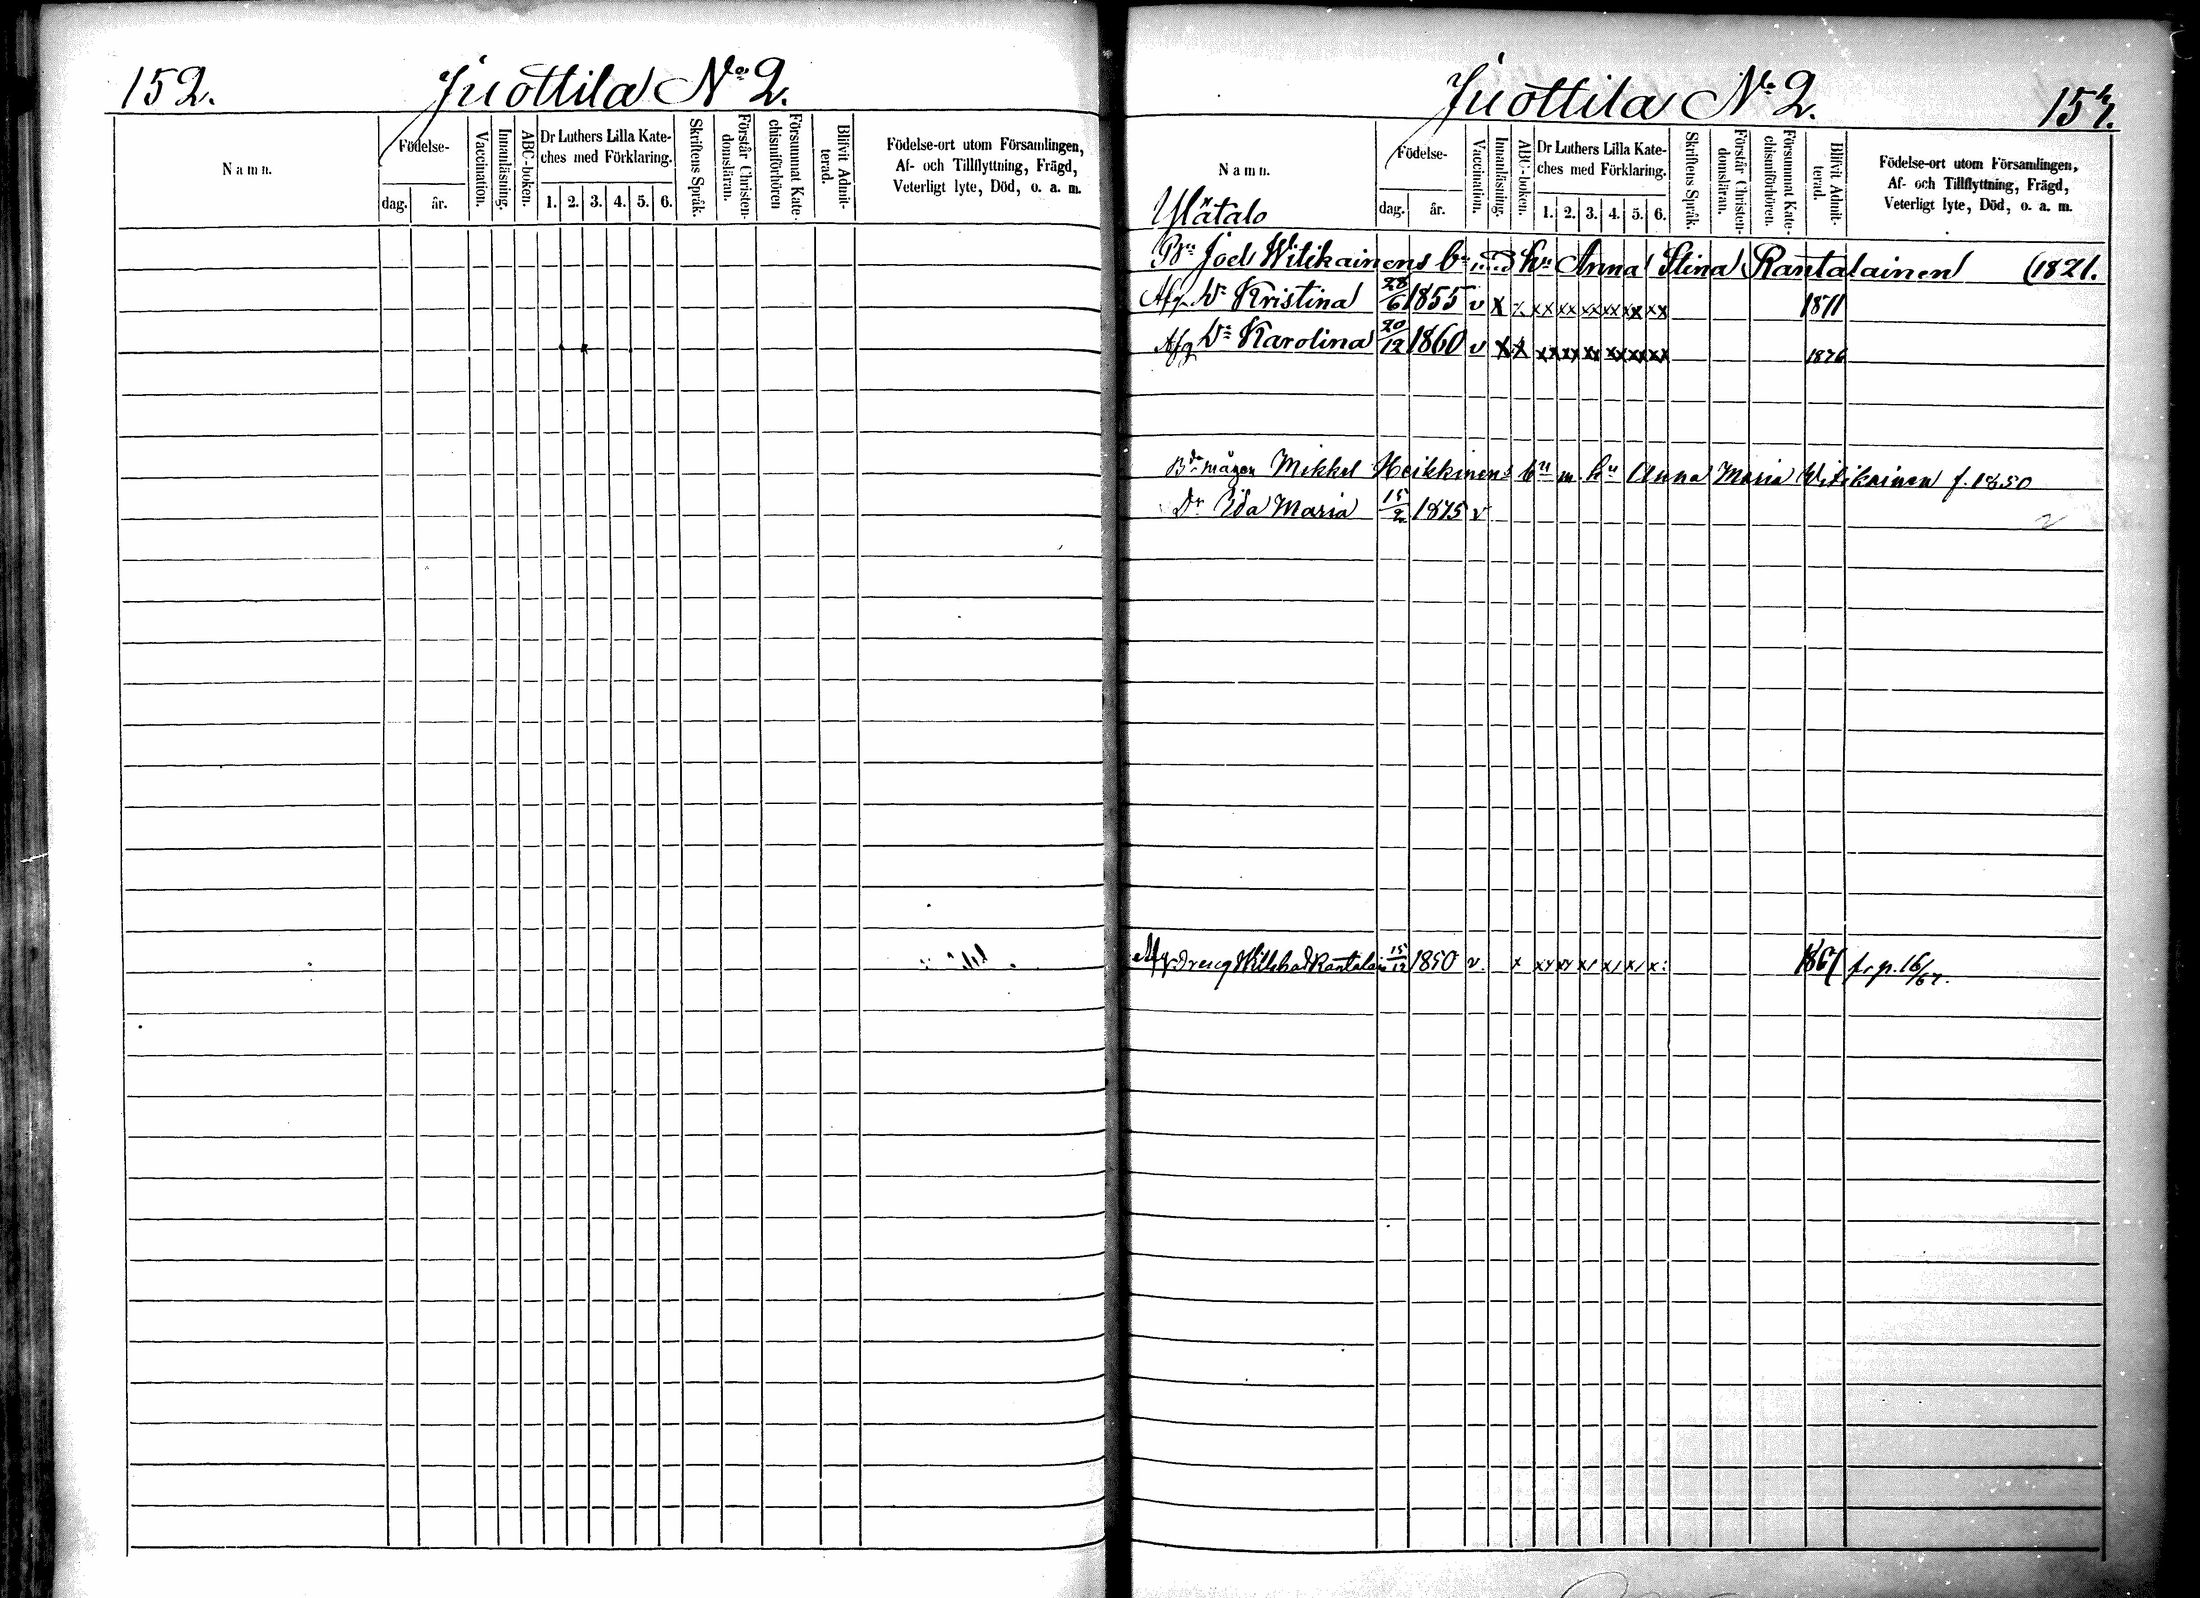 152.
Juottila No 2.
Namn.
Födelse-
dag.
år.
Vaccination.
Innanläsning.
ABC-boken.
Dr Luthers Lilla Kate-
ches med Förklaring.
1. 2. 3. 4. 5. 6.
Skriftens Språk.
Förstår Christen-
domsläran.
Försummat Kate-
chismiförhören
Blifvit Admit-
terad.
Födelse-ort utom Församlingen,
Af- och Tillflyttning, Frägd,
Veterligt lyte, Död, o. a. m.
Juottila No 2.
Namn.
Födelse-
dag.
år.
Vaccination.
Innanläsning.
ABC-boken.
Dr Luthers Lilla Kate-
ches med Förklaring.
1. 2. 3. 4. 5. 6.
Skriftens Språk.
Förstår Christen-
domsläran.
Försummat Kate-
chismiförhören.
Blifvit Admit-
terad.
Födelse-ort utom Församlingen,
Af- och Tillflyttning, Frägd,
Veterligt lyte, Död, o. a. m.
Ylätalo
Bn Joel Witikainens bn med hu Anna Stina Rantalainen (1821.
Afg. Dr Kristina 28/6 1855 v x x xx xx xx xx xx xx 1871
Afg Dr Karolina 20/12 1860 v x x xx xx xx xx xx xx 1876
Bde mågen Mikkel Heikkinens bn m. hu Anna Maria Witikainen f. 1850
Dr Ida Maria 15/2 1875 v
Afg. Dreng Rantalain 15/12 1850 v x xx xx xx xx xx x 1867 fr p. 16/67.